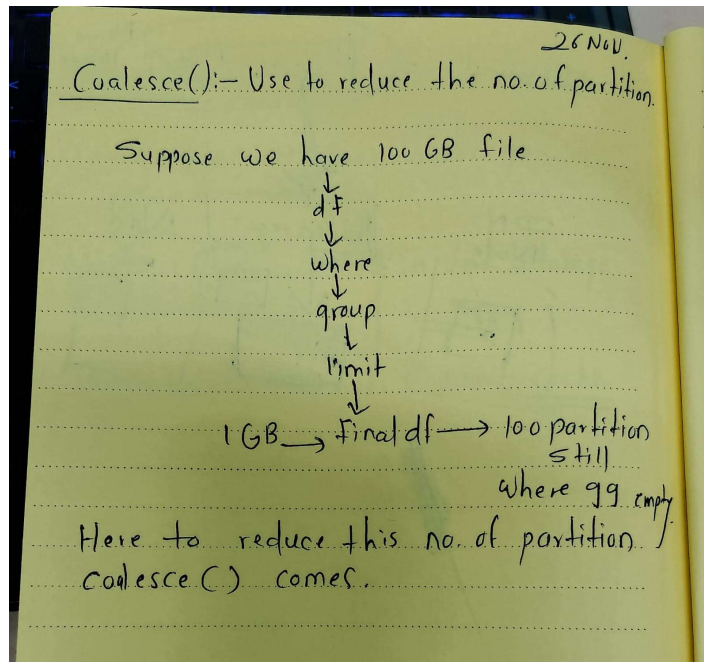 26 Nov.
Coalesce():- Use to reduce the no. of partition.
Suppose we have 100 GB file
↓
df
↓
where
↓
group
↓
limit
↓
1 GB → final df → 100 partition
still
where 99 empty.
Here to reduce this no. of partition
coalesce() comes.